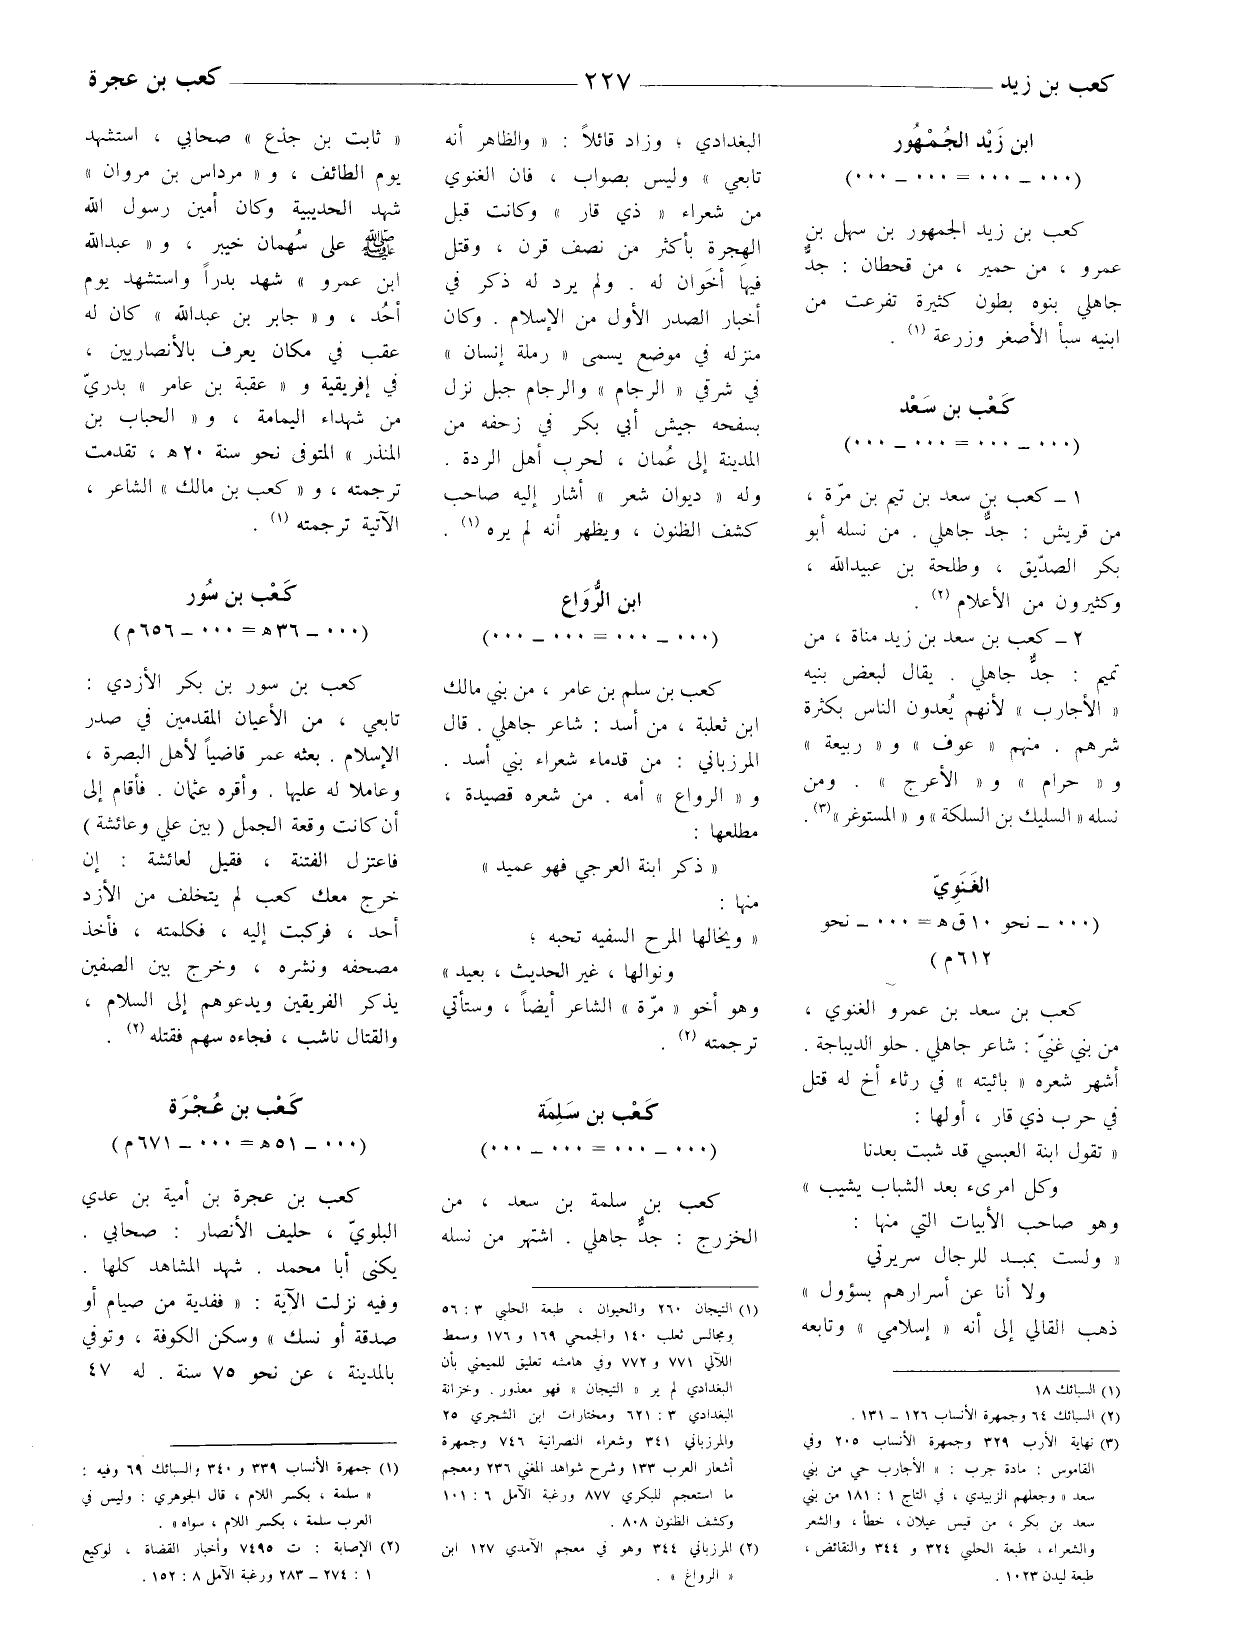 كعب بن زيد ٢٢٧ كعب بن عجرة
ابن زَيْد الجُمْهُور
(٠٠٠ ــ ٠٠٠ = ٠٠٠ ــ ٠٠٠)
كعب بن زيد الجمهور بن سهل بن
عمرو ، من حمير ، من قحطان : جدٌّ
جاهلي بنوه بطون كثيرة تفرعت من
ابنيه سبأ الأصغر وزرعة (١) .
كَعْب بن سَعْد
(٠٠٠ ــ ٠٠٠ = ٠٠٠ ــ ٠٠٠)
١ ــ كعب بن سعد بن تيم بن مرّة ،
من قريش : جدٌّ جاهلي . من نسله أبو
بكر الصدّيق ، وطلحة بن عبيدالله ،
وكثيرون من الأعلام (٢) .
٢ ــ كعب بن سعد بن زيد مناة ، من
تميم : جدٌّ جاهلي . يقال لبعض بنيه
« الأجارب » لأنهم يُعدون الناس بكثرة
شرهم . منهم « عوف » و « ربيعة »
و « حرام » و « الأعرج » . ومن
نسله « السليك بن السلكة » و « المستوغر »(٣) .
الغَنَوِيّ
(٠٠٠ ــ نحو ١٠ ق ه‍ = ٠٠٠ ــ نحو
٦١٢ م )
كعب بن سعد بن عمرو الغنوي ،
من بني غنيّ : شاعر جاهلي . حلو الديباجة .
أشهر شعره « بائيته » في رثاء أخ له قتل
في حرب ذي قار ، أولها :
« تقول ابنة العبسي قد شبت بعدنا
وكل امرىء بعد الشباب يشيب »
وهو صاحب الأبيات التي منها :
« ولست بمبد للرجال سريرتي
ولا أنا عن أسرارهم بسؤول »
ذهب القالي إلى أنه « إسلامي » وتابعه
(١) السبائك ١٨
(٢) السبائك ٦٤ وجمهرة الأنساب ١٢٦ ــ ١٣١ .
(٣) نهاية الأرب ٣٢٩ وجمهرة الأنساب ٢٠٥ وفي
القاموس : مادة جرب : « الأجارب حي من بني
سعد » وجعلهم الزبيدي ، في التاج ١ : ١٨١ من بني
سعد بن بكر ، من قيس عيلان ، خطأ ، والشعر
والشعراء ، طبعة الحلبي ٣٢٤ و ٣٤٤ والنقائض ،
طبعة ليدن ١٠٢٣ .
البغدادي ؛ وزاد قائلاً : « والظاهر أنه
تابعي » وليس بصواب ، فان الغنوي
من شعراء « ذي قار » وكانت قبل
الهجرة بأكثر من نصف قرن ، وقتل
فيها أخَوان له . ولم يرد له ذكر في
أخبار الصدر الأول من الإسلام . وكان
منزله في موضع يسمى « رملة إنسان »
في شرقي « الرجام » والرجام جبل نزل
بسفحه جيش أبي بكر في زحفه من
المدينة إلى عُمان ، لحرب أهل الردة .
وله « ديوان شعر » أشار إليه صاحب
كشف الظنون ، ويظهر أنه لم يره (١) .
ابن الرُّوَاع
(٠٠٠ ــ ٠٠٠ = ٠٠٠ ــ ٠٠٠)
كعب بن سلم بن عامر ، من بني مالك
ابن ثعلبة ، من أسد : شاعر جاهلي . قال
المرزباني : من قدماء شعراء بني أسد .
و « الرواع » أمه . من شعره قصيدة ،
مطلعها :
« ذكر ابنة العرجي فهو عميد »
منها :
« ويخالها المرح السفيه تحبه ؛
ونوالها ، غير الحديث ، بعيد »
وهو أخو « مرّة » الشاعر أيضاً ، وستأتي
ترجمته (٢) .
كَعْب بن سَلِمَة
(٠٠٠ ــ ٠٠٠ = ٠٠٠ ــ ٠٠٠)
كعب بن سلمة بن سعد ، من
الخزرج : جدٌّ جاهلي . اشتهر من نسله
(١) التيجان ٢٦٠ والحيوان ، طبعة الحلبي ٣ : ٥٦
ومجالس ثعلب ١٤٠ والجمحي ١٦٩ و ١٧٦ وسمط
اللآلي ٧٧١ و ٧٧٢ وفي هامشه تعليق للميمني بأن
البغدادي لم ير « التيجان » فهو معذور . وخزانة
البغدادي ٣ : ٦٢١ ومختارات ابن الشجري ٢٥
والمرزباني ٣٤١ وشعراء النصرانية ٧٤٦ وجمهرة
أشعار العرب ١٣٣ وشرح شواهد المغني ٢٣٦ ومعجم
ما استعجم للبكري ٨٧٧ ورغبة الآمل ٦ : ١٠١
وكشف الظنون ٨٠٨ .
(٢) المرزباني ٣٤٤ وهو في معجم الآمدي ١٢٧ ابن
« الرواغ » .
« ثابت بن جذع » صحابي ، استشهد
يوم الطائف ، و « مرداس بن مروان »
شهد الحديبية وكان أمين رسول الله
ﷺ على سُهمان خيبر ، و « عبدالله
ابن عمرو » شهد بدراً واستشهد يوم
أحُد ، و « جابر بن عبدالله » كان له
عقب في مكان يعرف بالأنصاريين ،
في إفريقية و « عقبة بن عامر » بدريّ
من شهداء اليمامة ، و « الحباب بن
المنذر » المتوفى نحو سنة ٢٠ ه‍ ، تقدمت
ترجمته ، و « كعب بن مالك » الشاعر ،
الآتية ترجمته (١) .
كَعْب بن سُور
(٠٠٠ ــ ٣٦ ه‍ = ٠٠٠ ــ ٦٥٦ م )
كعب بن سور بن بكر الأزدي :
تابعي ، من الأعيان المقدمين في صدر
الإسلام . بعثه عمر قاضياً لأهل البصرة ،
وعاملا له عليها . وأقره عثمان . فأقام إلى
أن كانت وقعة الجمل ( بين علي وعائشة )
فاعتزل الفتنة ، فقيل لعائشة : إن
خرج معك كعب لم يتخلف من الأزد
أحد ، فركبت إليه ، فكلمته ، فأخذ
مصحفه ونشره ، وخرج بين الصفين
يذكر الفريقين ويدعوهم إلى السلام ،
والقتال ناشب ، فجاءه سهم فقتله (٢) .
كَعْب بن عُجْرَة
(٠٠٠ ــ ٥١ ه‍ = ٠٠٠ ــ ٦٧١ م )
كعب بن عجرة بن أمية بن عدي
البلويّ ، حليف الأنصار : صحابي .
يكنى أبا محمد . شهد المشاهد كلها .
وفيه نزلت الآية : « ففدية من صيام أو
صدقة أو نسك » وسكن الكوفة ، وتوفي
بالمدينة ، عن نحو ٧٥ سنة . له ٤٧
(١) جمهرة الأنساب ٣٣٩ و ٣٤٠ والسبائك ٦٩ وفيه :
« سلمة ، بكسر اللام ، قال الجوهري : وليس في
العرب سلمة ، بكسر اللام ، سواه » .
(٢) الإصابة : ت ٧٤٩٥ وأخبار القضاة ، لوكيع
١ : ٢٧٤ ــ ٢٨٣ ورغبة الآمل ٨ : ١٥٢ .